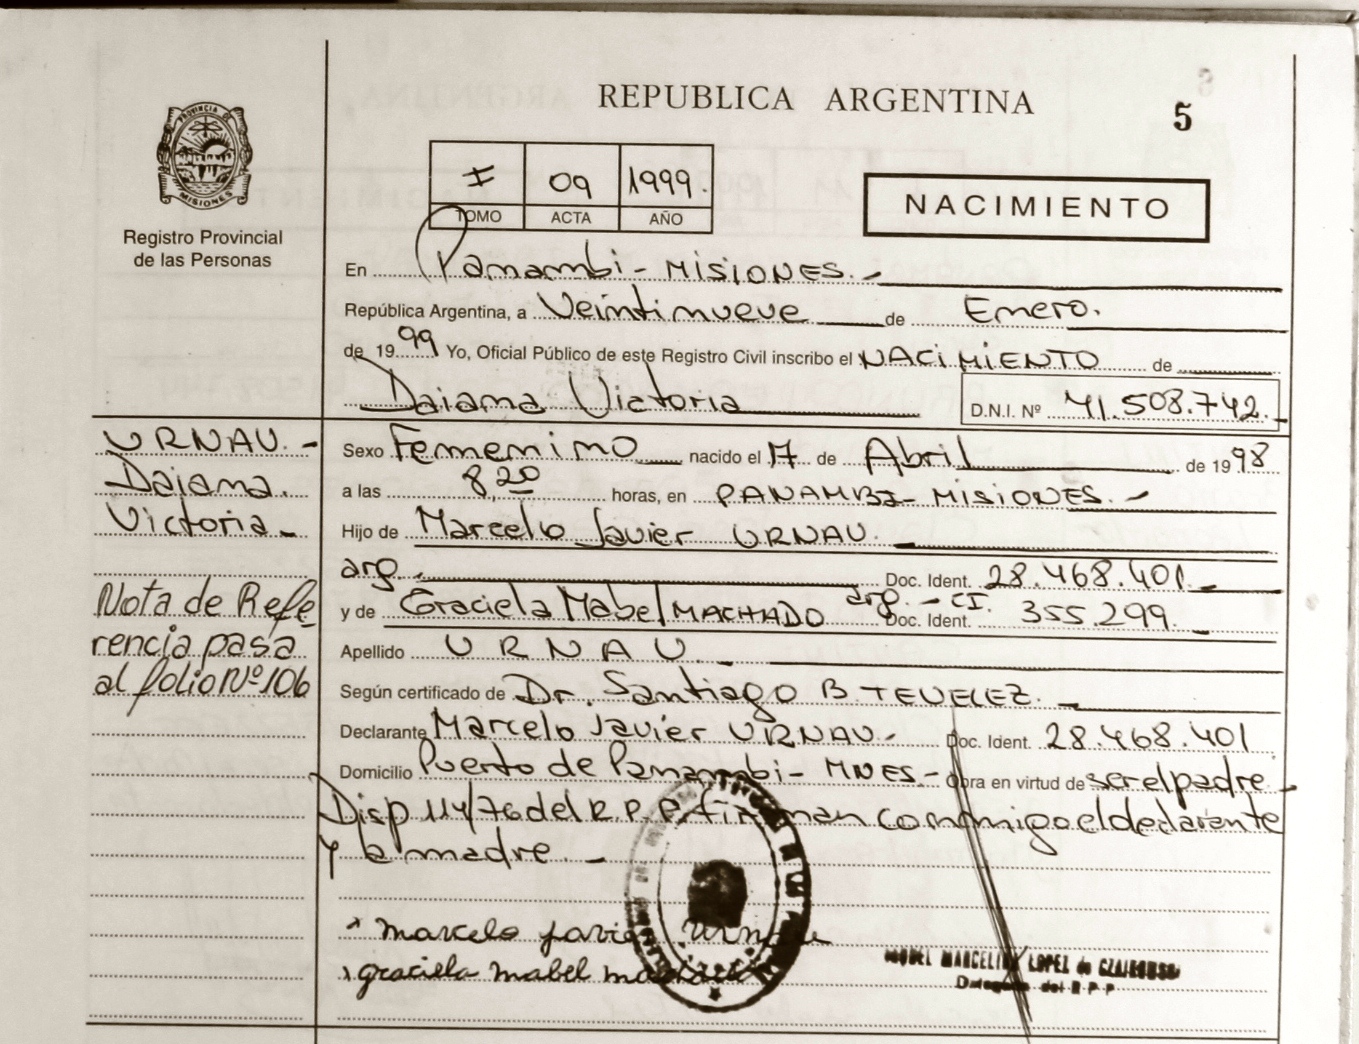 REPUBLICA ARGENTINA
5
PROVINCIA DE
MISIONES
Registro Provincial
de las Personas
09 1999.
TOMO ACTA AÑO
NACIMIENTO
En Panambi - MISIONES.-
República Argentina, a Veintinueve de Enero.
de 1999 Yo, Oficial Público de este Registro Civil inscribo el NACIMIENTO de
Daiana Victoria D.N.I. Nº 41.508.742.-
URNAU.-
Daiana.
Victoria.-
Nota de Refe
rencia pasa
al folio Nº 106
Sexo Femenino nacido el 17 de Abril de 1998
a las 8,20 horas, en PANAMBI- MISIONES.-
Hijo de Marcelo Javier URNAU.
arg. Doc. Ident. 28.468.401.-
y de Graciela Mabel MACHADO arg.- CI. Doc. Ident. 355.299.-
Apellido URNAU.-
Según certificado de Dr. Santiago B. TEVELEZ.-
Declarante Marcelo Javier URNAU.- Doc. Ident. 28.468.401
Domicilio Puerto de Panambi- MNES.- Obra en virtud de ser el padre.-
Disp 114/76 del R.P.P. firman conmigo el declarante
y la madre.-
marcelo javier Urnau
graciela mabel machado
MARCELINA LOPEZ de
Delegada del R P P